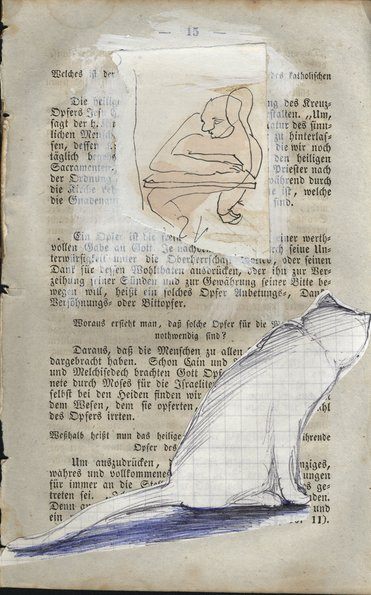 — 15 —
Welches ist der des katholischen
Die heilige ng des Kreuz-
Opfers Jesu stalten. „Um,
sagt der h. atur des sinn-
lichen Mensch zu hinterlas-
sen, dessen die wir noch
täglich bege den heiligen
Sacramenten Priester nach
der Ordnung während durch
die Kirche ist, welche
die Gnaden sind.
Ein Opfer ist die einer werth-
vollen Gabe an Gott durch seine Un-
terwürfigkeit unter die Oberherrschaft Gottes, oder seinen
Dank für dessen Wohlthaten ausdrücken, oder ihn zur Ver-
zeihung seiner Sünden und zur Gewährung seiner Bitte be-
wegen will, heißt ein solches Opfer Anbetungs-, Dank
Versöhnungs- oder Bittopfer.
Woraus ersieht man, daß solche Opfer für die
nothwendig sind?
Daraus, daß die Menschen zu allen
dargebracht haben. Schon Cain und
und Melchisedech brachten Gott Opf
nete durch Moses für die Israelite
selbst bei den Heiden finden wir
dem Wesen, dem sie opferten, hl
des Opfers irrten.
Weßhalb heißt nun das heilige ährende
Opfer des
Um auszudrücken, nziges,
wahres und vollkommenes ungen
für immer an die Stelle s ge-
treten sei. den.
Denn
ein 11).